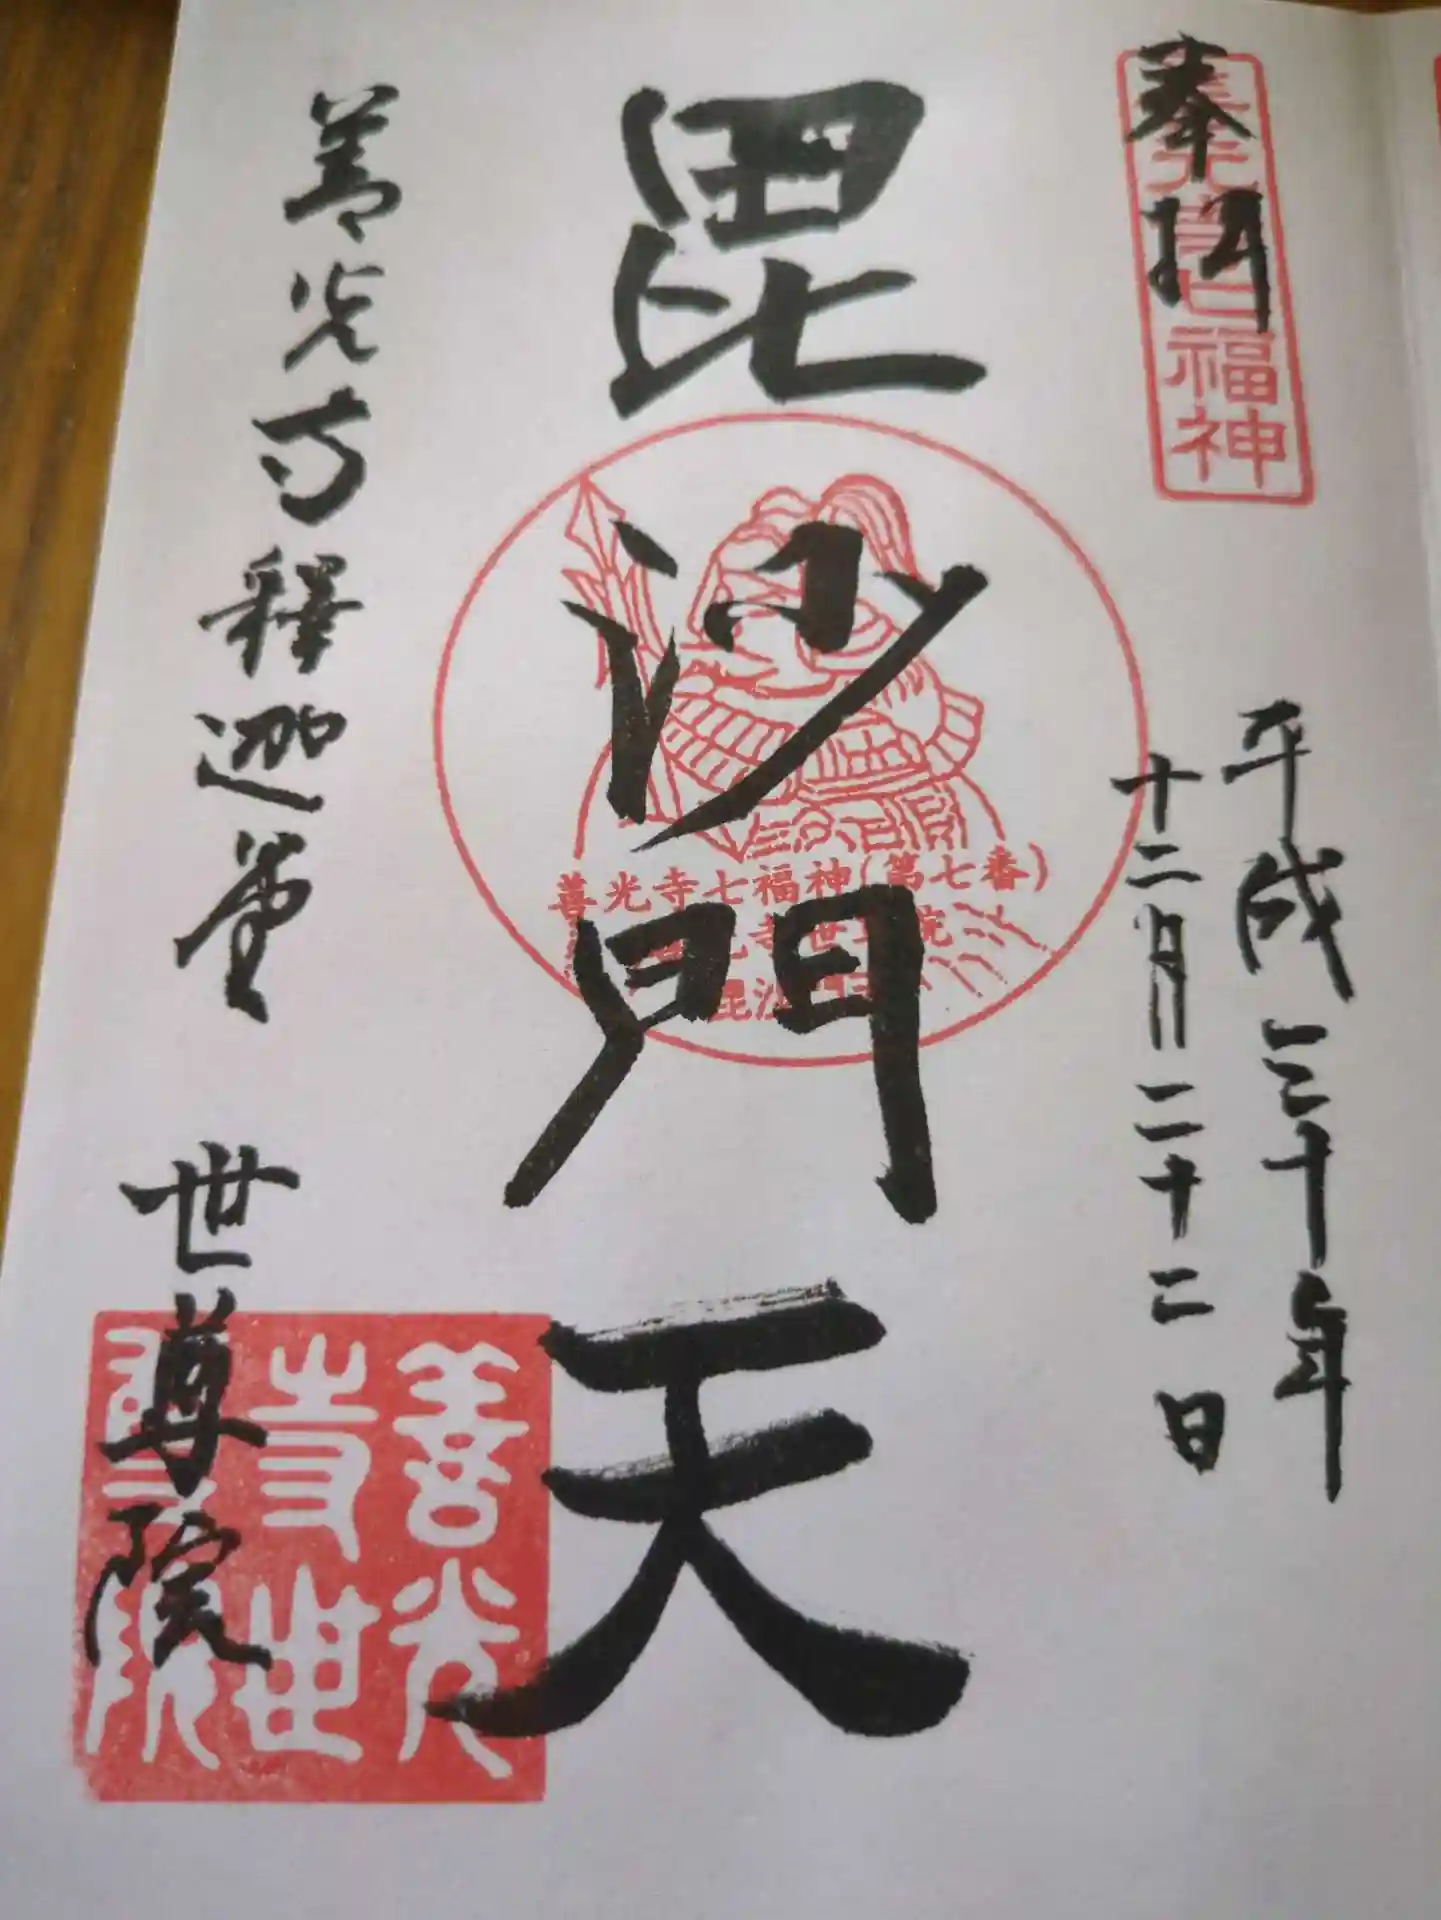 奉拝
善光寺七福神
平成三十年
十二月二十二日
毘沙門天
善光寺七福神(第七番)
善光寺世尊院
毘沙門天
善光寺釋迦堂 世尊院
善光
寺世
尊院